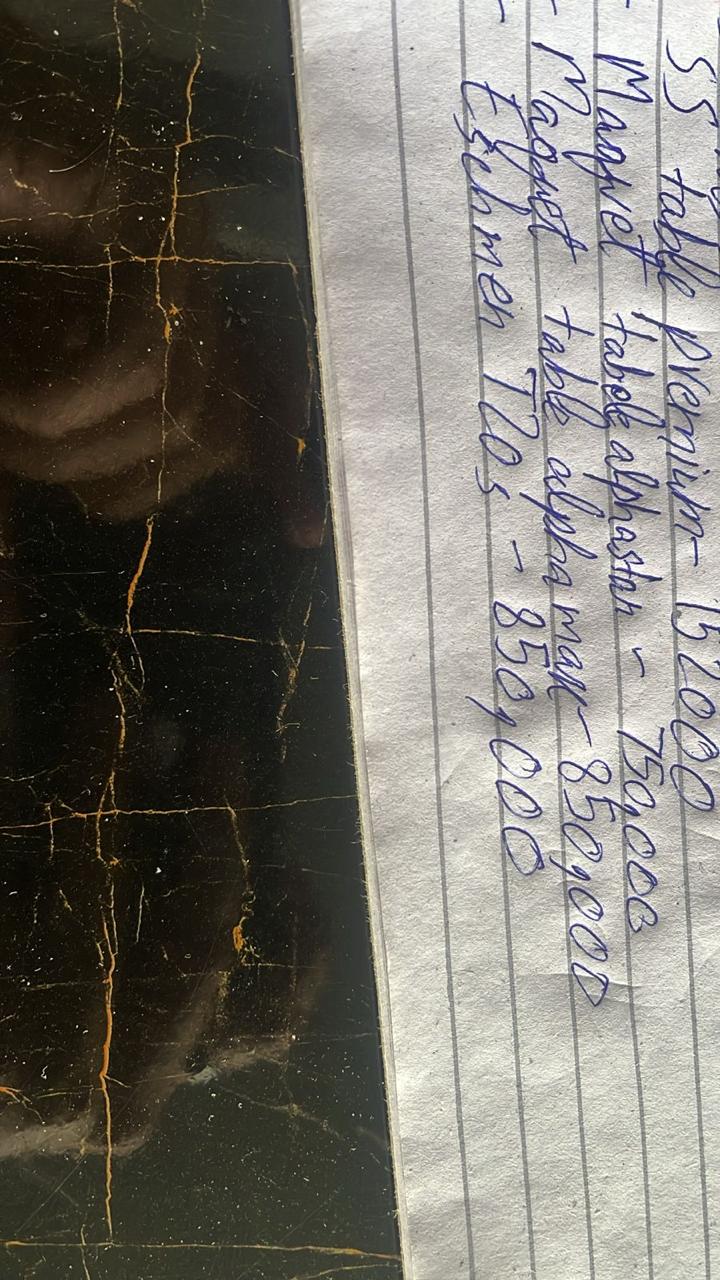 SS table premium - 152000
- Magnet tabole alphastan - 750,000
- Magnet table alpha max - 850,000
- Eschmen T20s - 850,000